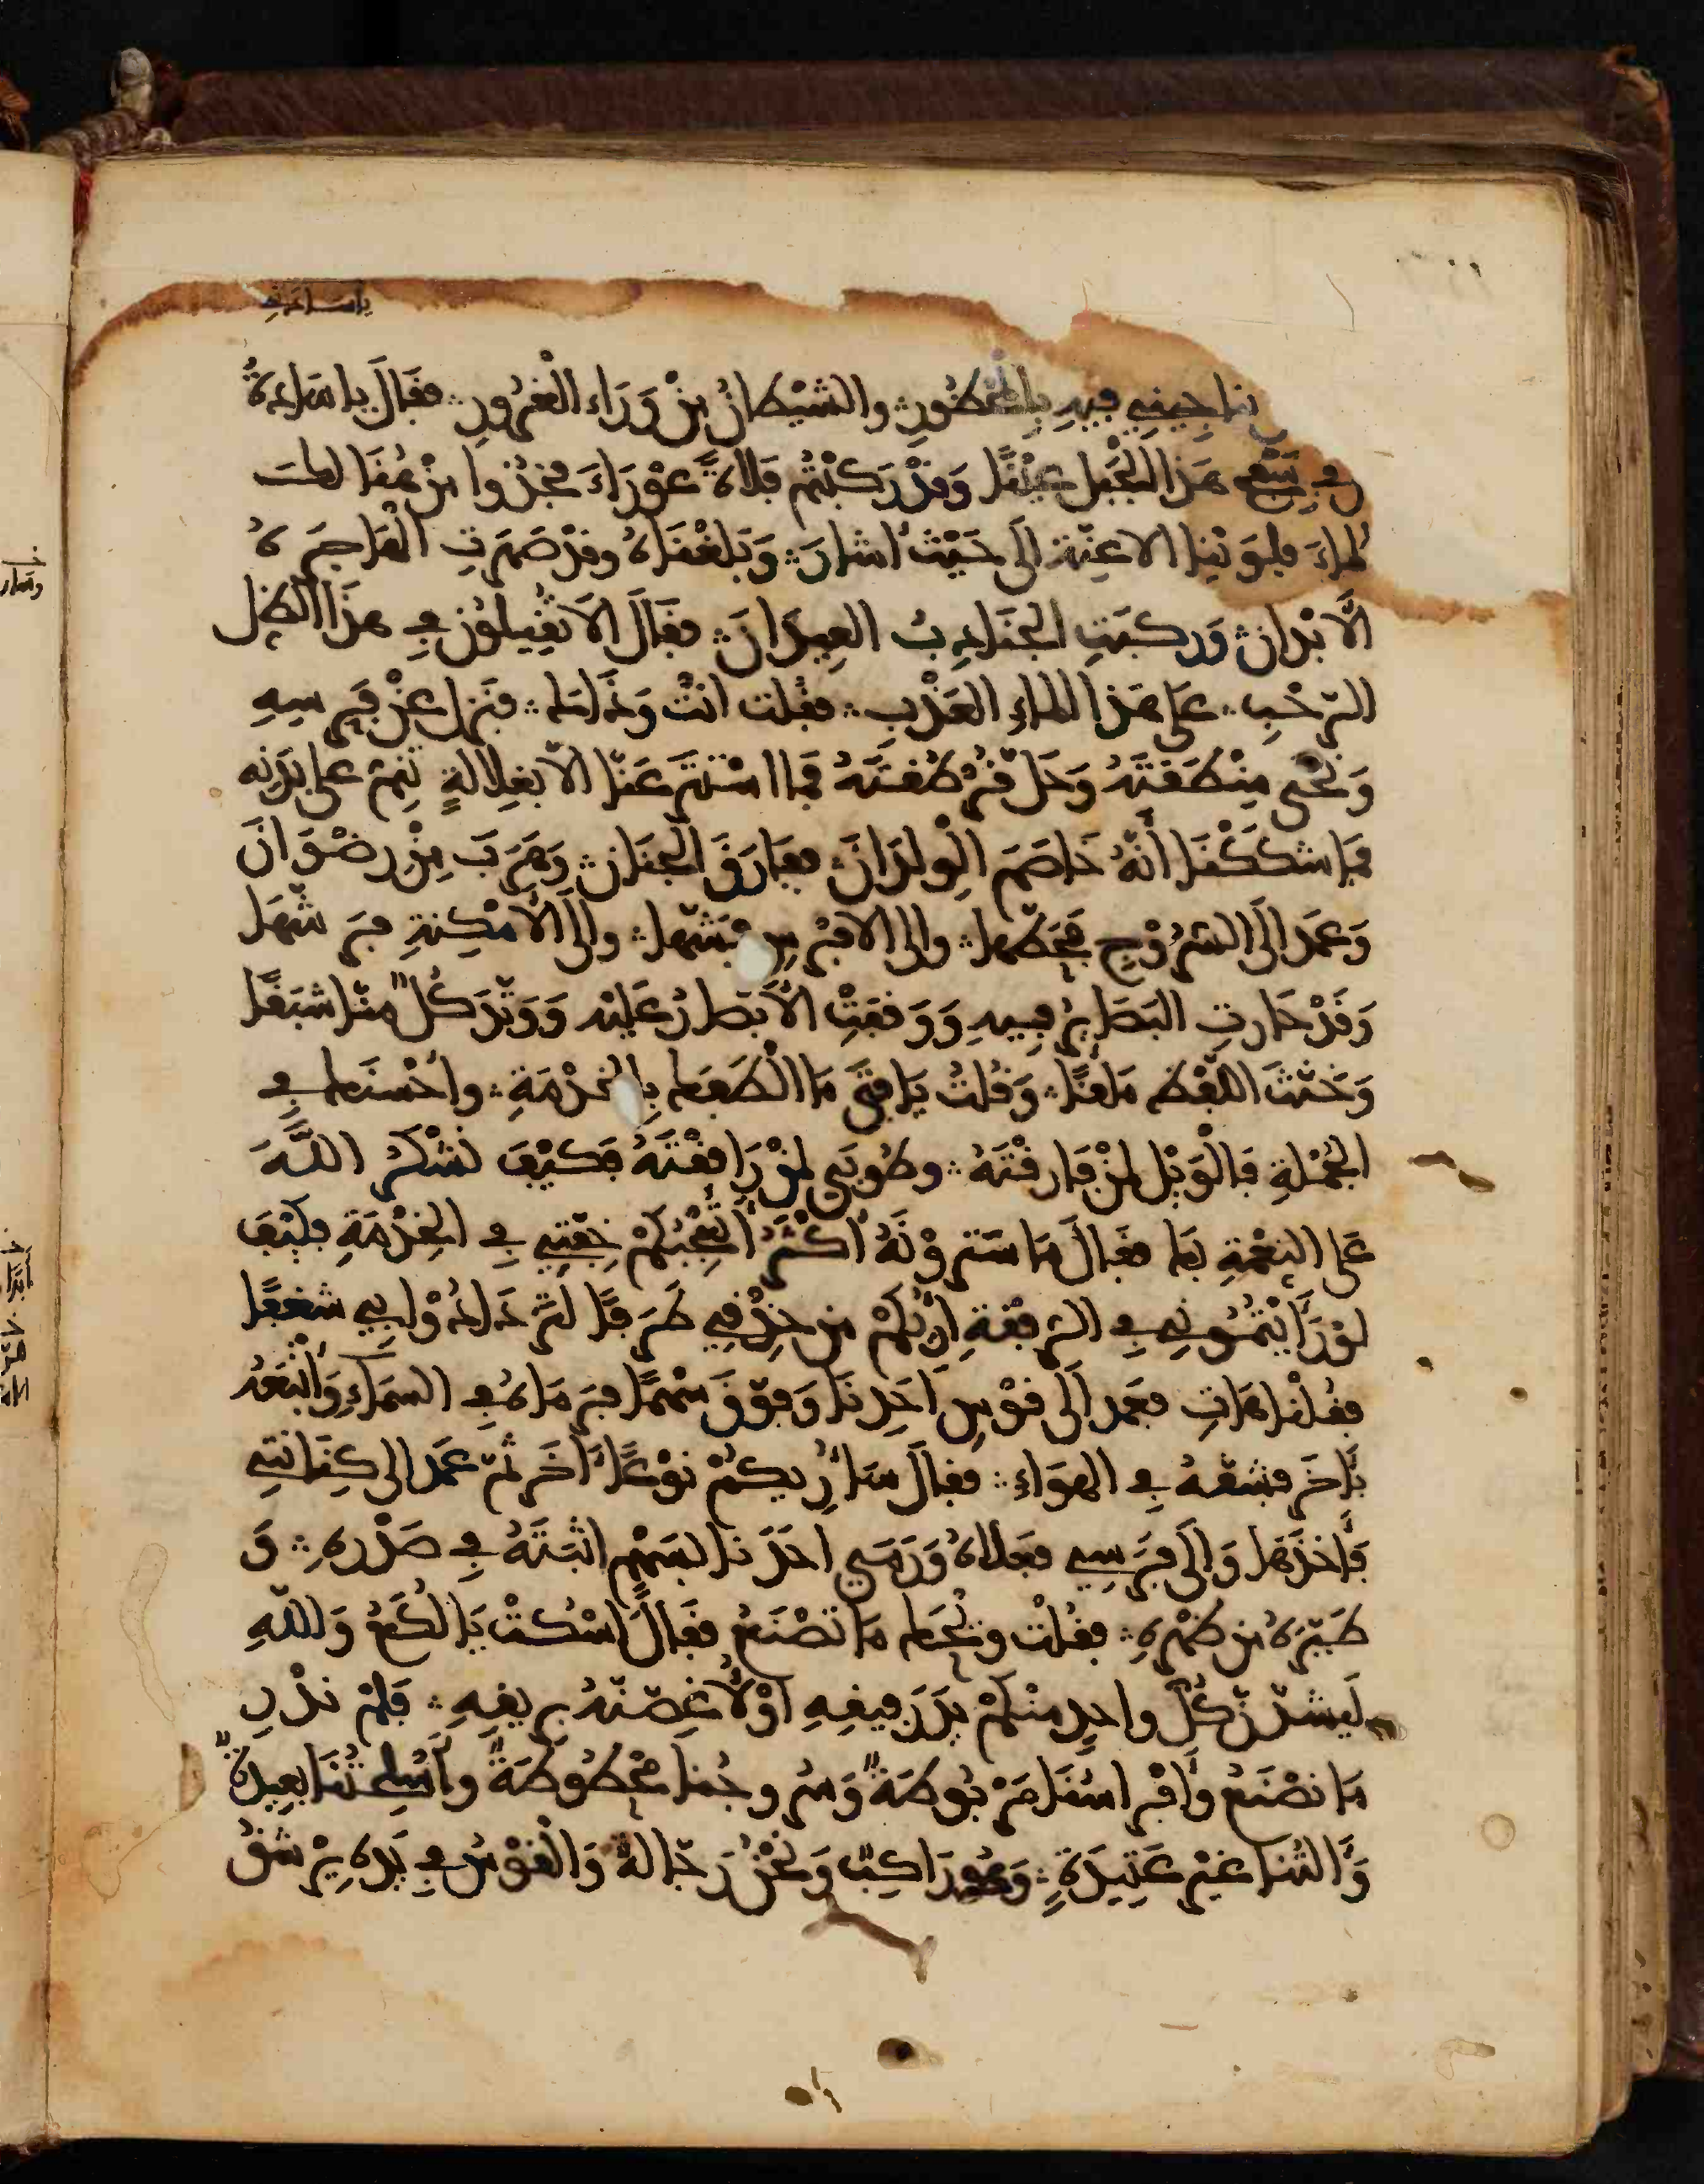 ياسادتي
يناجيني فيه بالمحظور والشيطان من وراء الغرور فقال يا سادة
في سفح هذا الجبل عينا وقد ركبتم فلاة عوراء فخذوا من هنالك
الماء فلوينا الاعنة إلى حيث أشار وبلغناه وقد صهرت الهاجرة
الأبدان وركبت الجنادب العيدان فقال ألا تقيلون في هذا الظل
الرحب على هذا الماء العذب فقلت انت وذاك فنزل عن فرسه
ونحى منطقته وحل قرطقته فما استتر عنا إلا بغلالة تنم على بدنه
فما شككنا أنه خاصم الولدان ففارق الجنان وهرب من رضوان
وعمد إلى السروج فحطها وإلى الافراس فحشها وإلى الأمكنة فرشها
وقد حارت البصائر فيه ووقفت الأبصار عليه ووتد كل منا شبقا
وخنث اللفظ ملقا وقلت يا فتى ما الطفك بالخدمة واحسنك في
الجملة فالويل لمن فارقته وطوبى لمن رافقته فكيف نشكر الله
على النعمة بك فقال ما سترونه أكثر أتعجبكم خفتي في الخدمة فكيف
لو رأيتموني في الرفقة أريكم من حذقي طرفا لتزدادوا بي شغفا
فقلنا هات فعمد إلى قوس أحدنا وفوق سهما فرماه في السماء وأتبعه
بآخر فشقه في الهواء فقال سأريكم نوعا آخر ثم عمد إلى كنانتي
فأخذها وإلى فرسي فعلاه ورمى احدنا بسهم اثبته في صدره و
طيره من ظهره فقلت ويحك ما تصنع فقال اسكت يا لكع والله
ليشدن كل واحد منكم يد رفيقه أو لأغصنه بريقه فلم ندر
ما نصنع وأفراسنا مربوطة وسروجنا محطوطة وأسلحتنا بعيدة
وألتنا غير عتيدة وهو راكب ونحن رجالة والقوس في يده يرشق